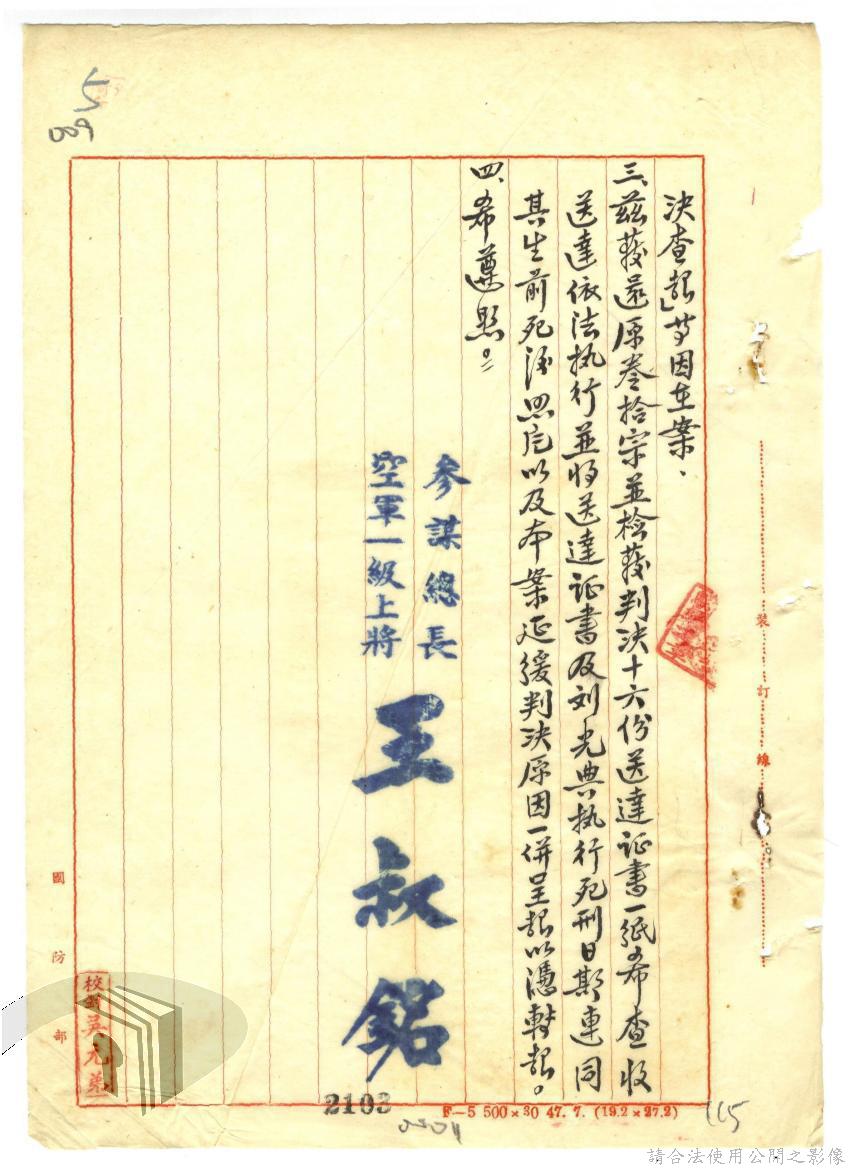 決查報」等因在案、
三、茲發還原卷拾宗並檢發判決十六份送達证書一紙希查收
送達依法执行並將送達证書及刘光典执行死刑日期連同
其生前死後照片以及本案延緩判決原因一併呈報以憑轉報。
四、希遵照。
參謀總長
空軍一級上將
王叔銘
5
009
裝訂線
國防部
2103
F—5 500×30 47. 7. (19.2×27.2)
115
請合法使用公開之影像